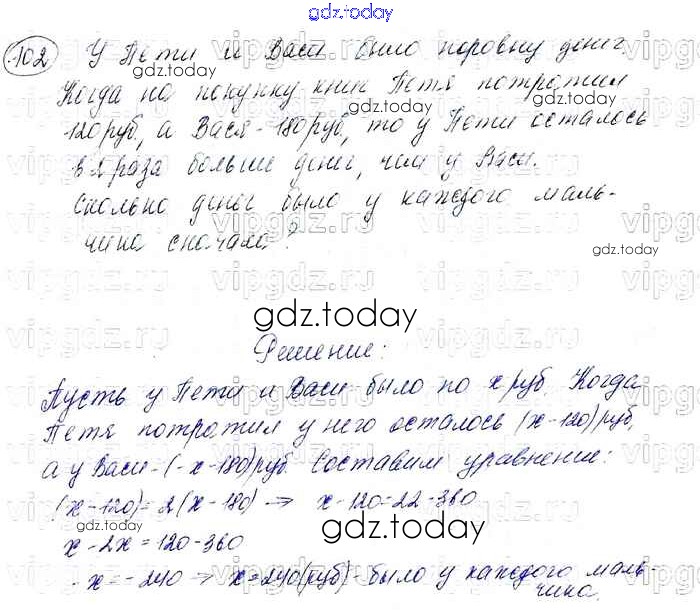 gdz.today
102 У Пети и Васи было поровну денег.
gdz.today
Когда на покупку книг Петя потратил
gdz.today
120 руб, а Вася - 180 руб, то у Пети осталось
gdz.today
в 2 раза больше денег, чем у Васи.
Сколько денег было у каждого маль-
чика сначала?
gdz.today
gdz.today
Решение:
Пусть у Пети и Васи было по x руб. Когда
Петя потратил у него осталось (x-120) руб,
а у Васи - (-x-180) руб. Составим уравнение:
(x-120)=2(x-180) → x-120=22-360
gdz.today
gdz.today
x-2x=120-360
-x=-240 → x=240(руб)- было у каждого маль-
чика.
vipgdz.ru